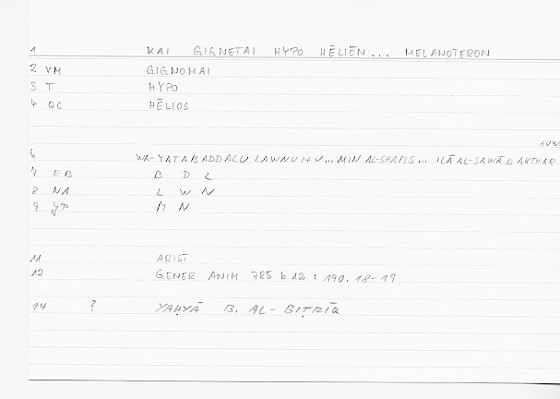 1 KAI GIGNETAI HYPO HĒLIĒN... MELANOTERON
2 VM GIGNOMAI
3 T HYPO
4 QC HĒLIOS
6 WA-YATABADDALU LAWNUHU... MIN AL-SHAMS... ILĀ AL-SAWĀD AKTHAR
7 EB B D L
8 NA L W N
9 YP M N
11 ARIST
12 GENER ANIM 785 b 12 : 190.18-19
14 ? YAḤYĀ B. AL-BIṬRĪQ